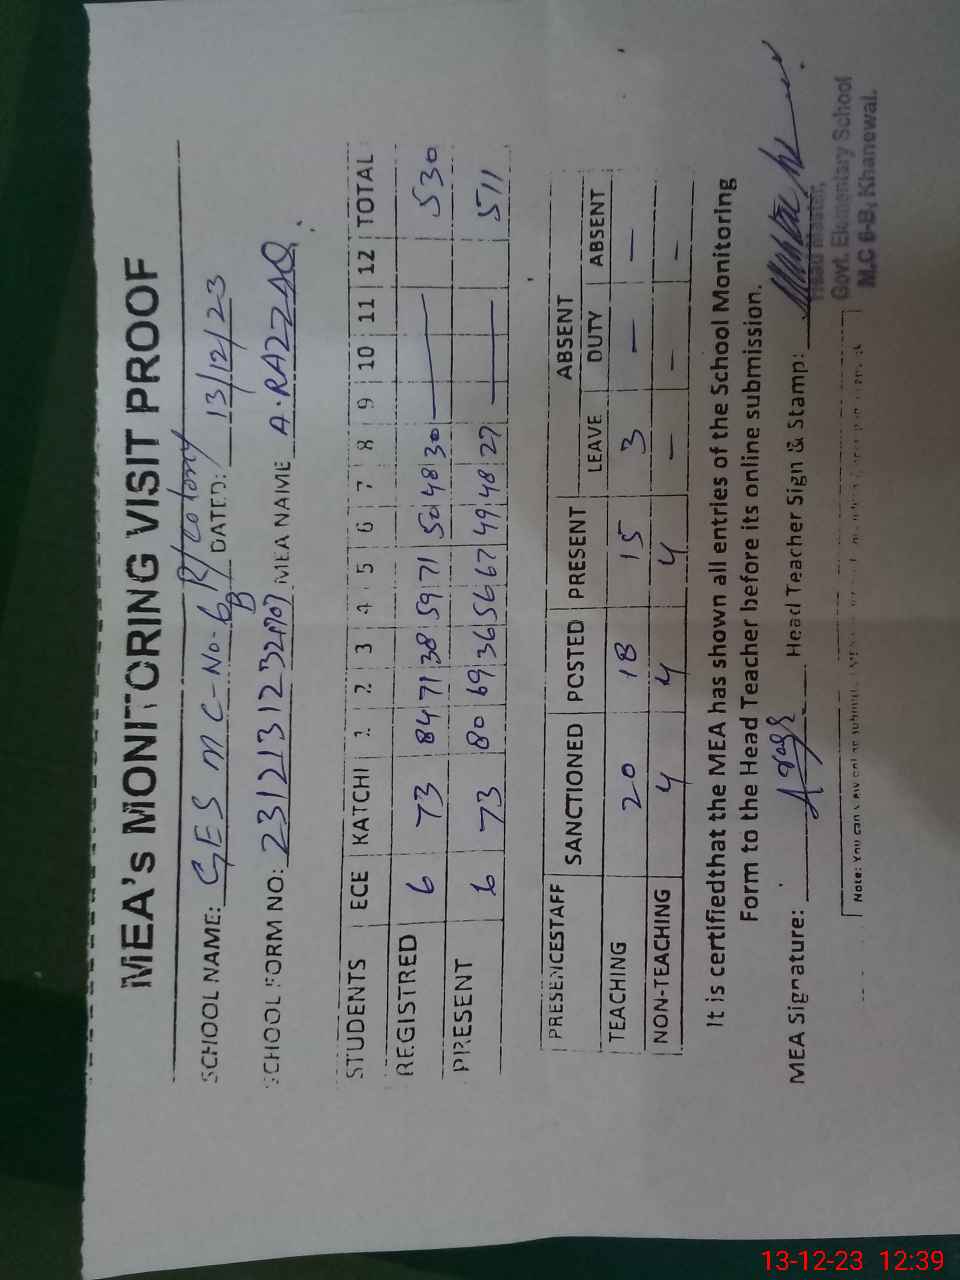 MEA's MONITORING VISIT PROOF
SCHOOL NAME: GES MC-No-6 B R/Colony DATED: 13/12/23
SCHOOL FORM NO: MEA NAME A.RAZZAQ.
STUDENTS ECE KATCHI 1 2 3 4 5 6 7 8 9 10 11 12 TOTAL
REGISTRED 6 73 84 71 38 59 71 50 48 30 — 530
PRESENT 6 73 80 69 36 56 67 49 48 27 — 511
ABSENT
PRESENCESTAFF SANCTIONED POSTED PRESENT LEAVE DUTY ABSENT
TEACHING 20 18 15 3 — —
NON-TEACHING 4 4 4 — — —
It is certifiedthat the MEA has shown all entries of the School Monitoring
Form to the Head Teacher before its online submission.
MEA Signature: Head Teacher Sign & Stamp:
Head Master,
Govt. Elementary School
M.C 6-B, Khanewal.
Note: You can view
13-12-23 12:39